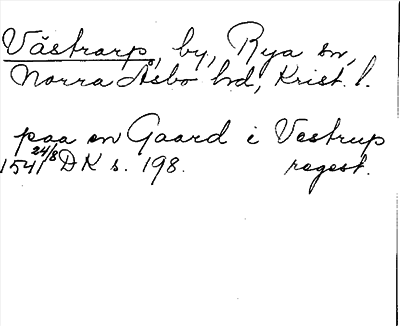 Västrarp, by, Rya sn,
Norra Åsbo hd, Krist. l.
paa en Gaard i Vestrup
1541 24/8 DK s. 198. regest.